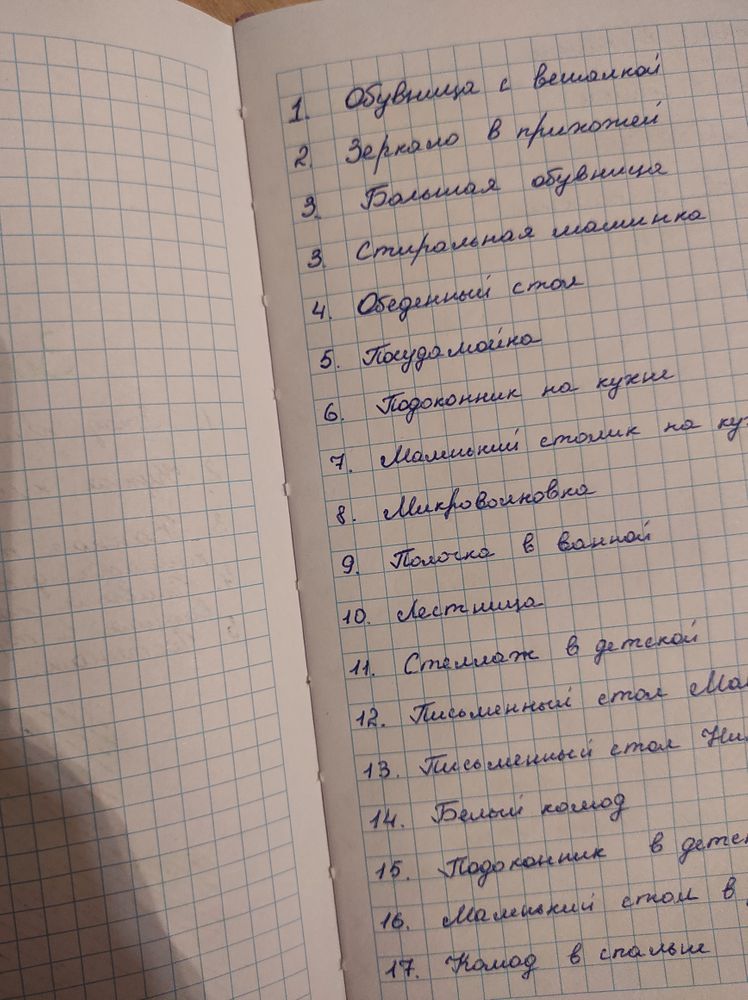 1. Обувница с вешалкой
2. Зеркало в прихожей
3. Большая обувница
3. Стиральная машинка
4. Обеденный стол
5. Посудомойка
6. Подоконник на кухне
7. Маленький столик на
8. Микроволновка
9. Полочка в ванной
10. Лестница
11. Стеллаж в детской
12. Письменный стол
13. Письменный стол
14. Белый комод
15. Подоконник в
16. Маленький стол в
17. Комод в спальне